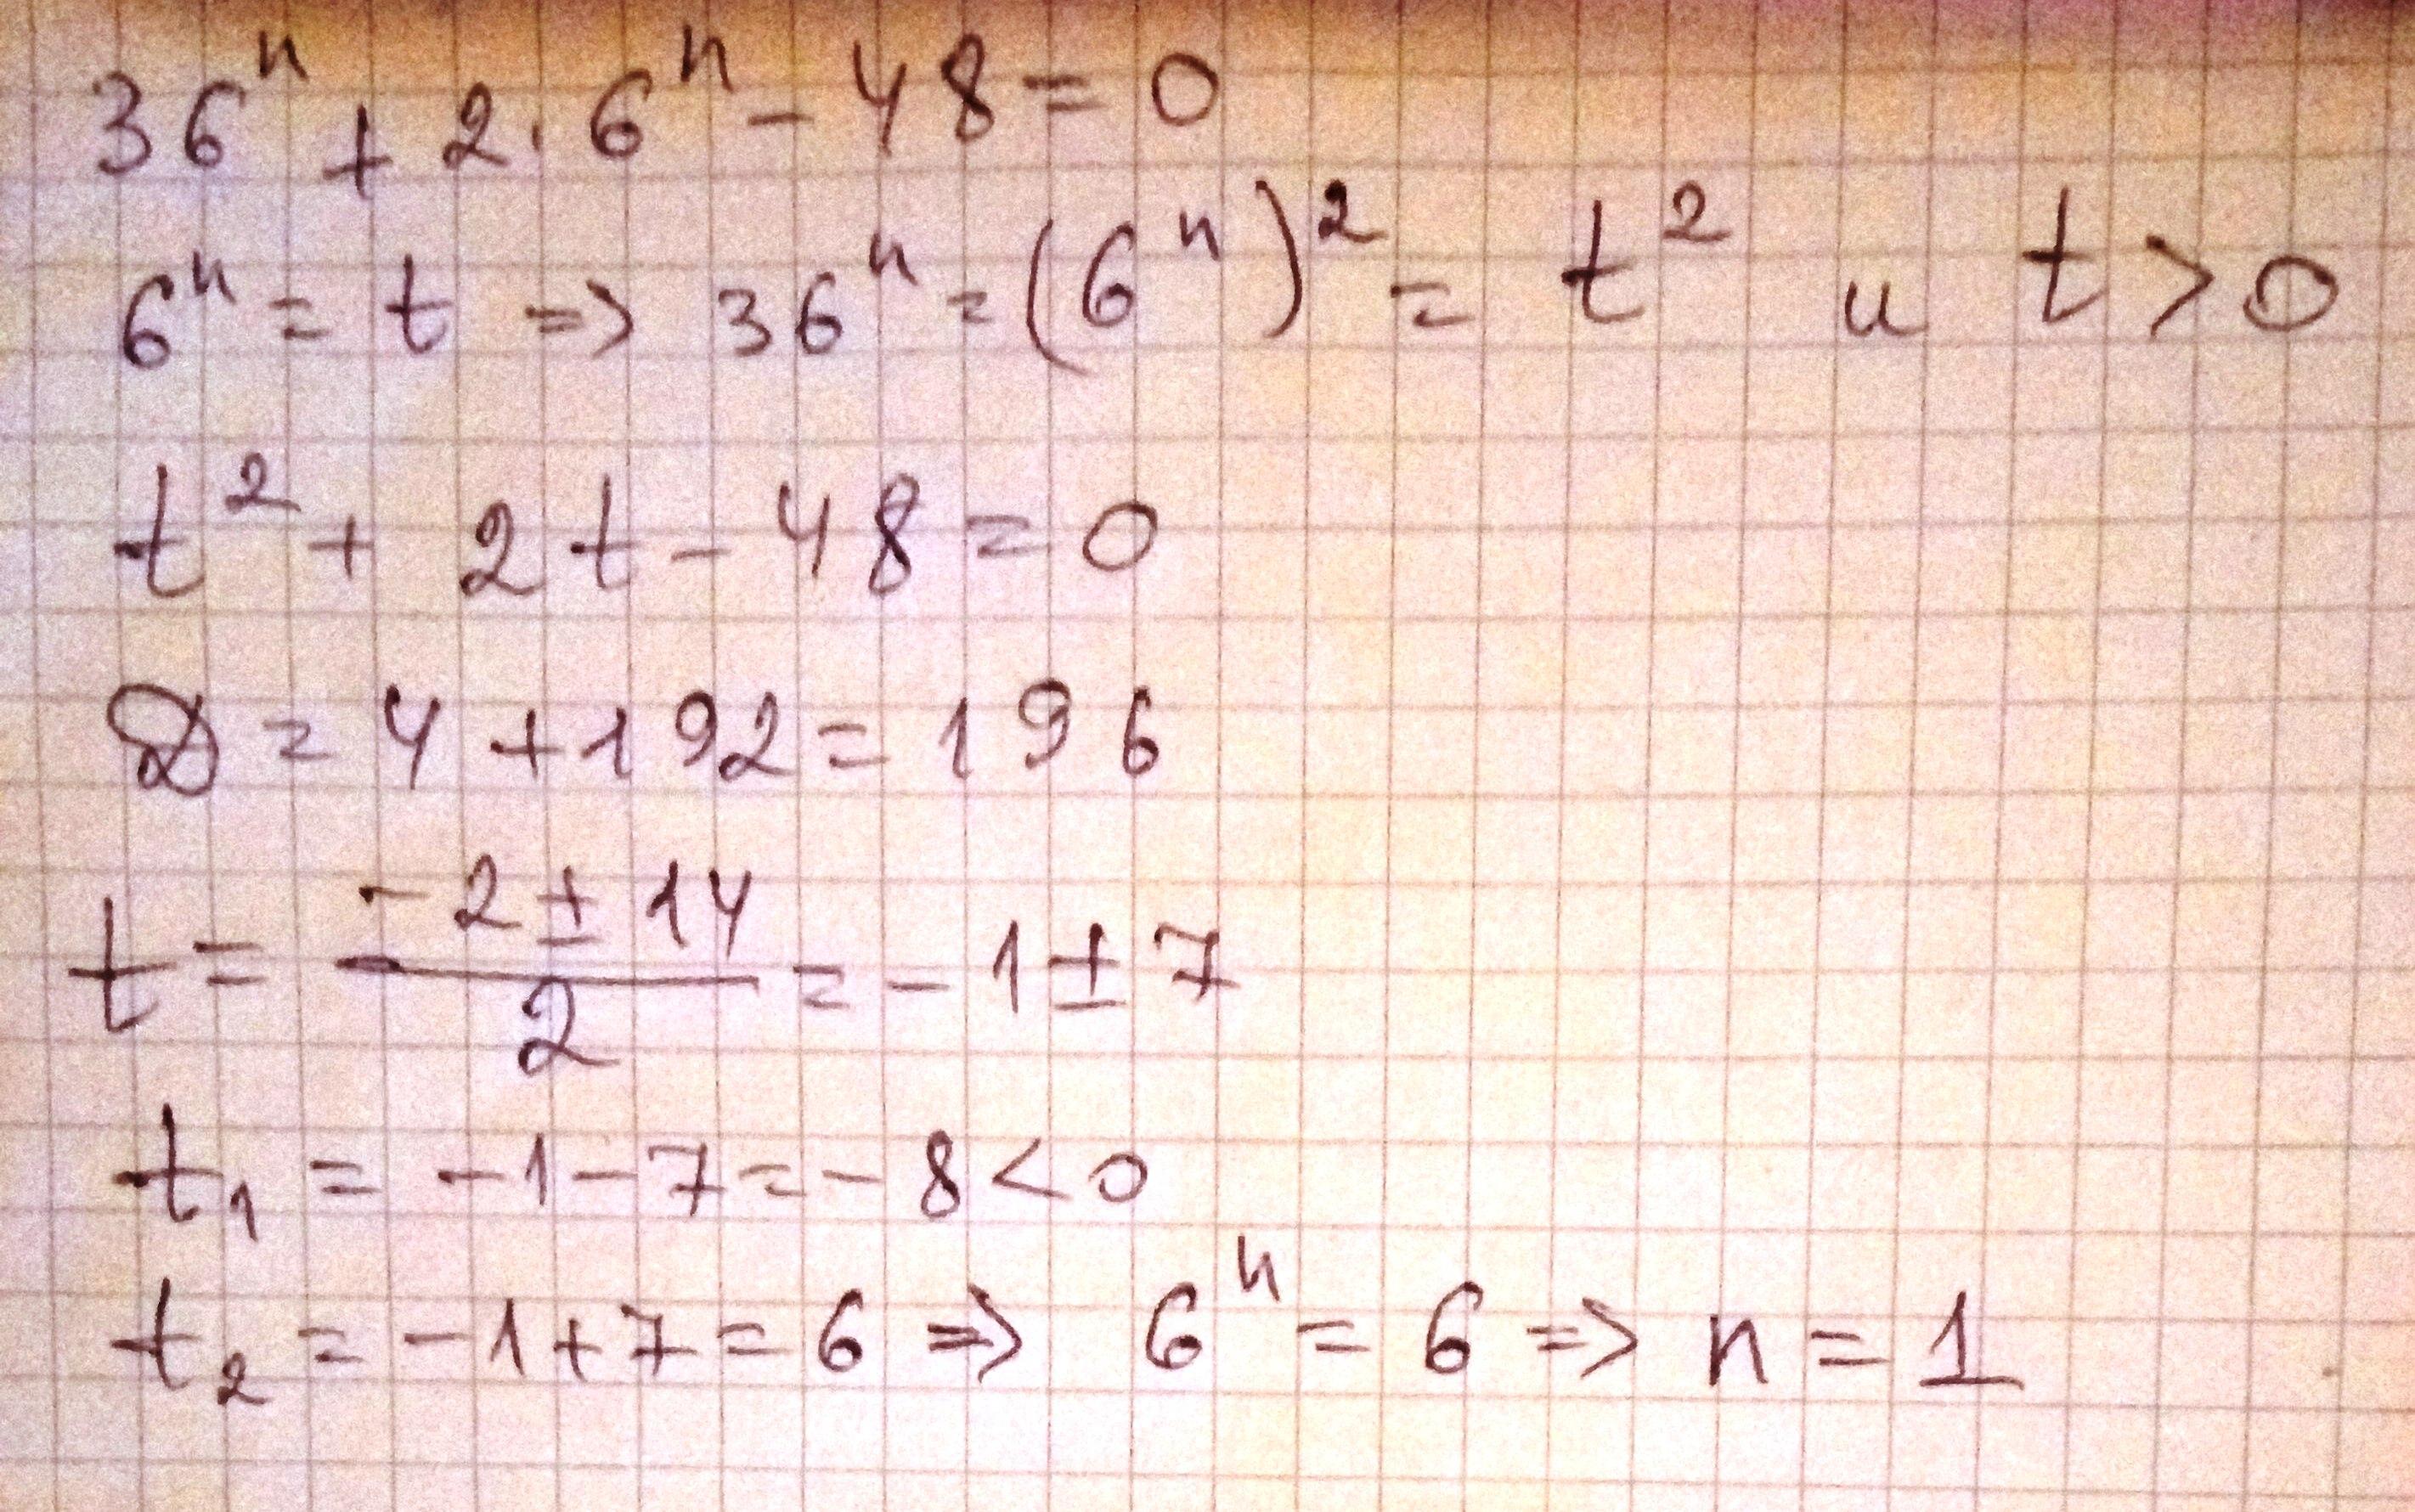 36ⁿ + 2 · 6ⁿ − 48 = 0
6ⁿ = t => 36ⁿ = (6ⁿ)² = t² и t > 0
t² + 2t − 48 = 0
D = 4 + 192 = 196
t = (−2 ± 14)/2 = −1 ± 7
t₁ = −1 − 7 = −8 < 0
t₂ = −1 + 7 = 6 => 6ⁿ = 6 => n = 1